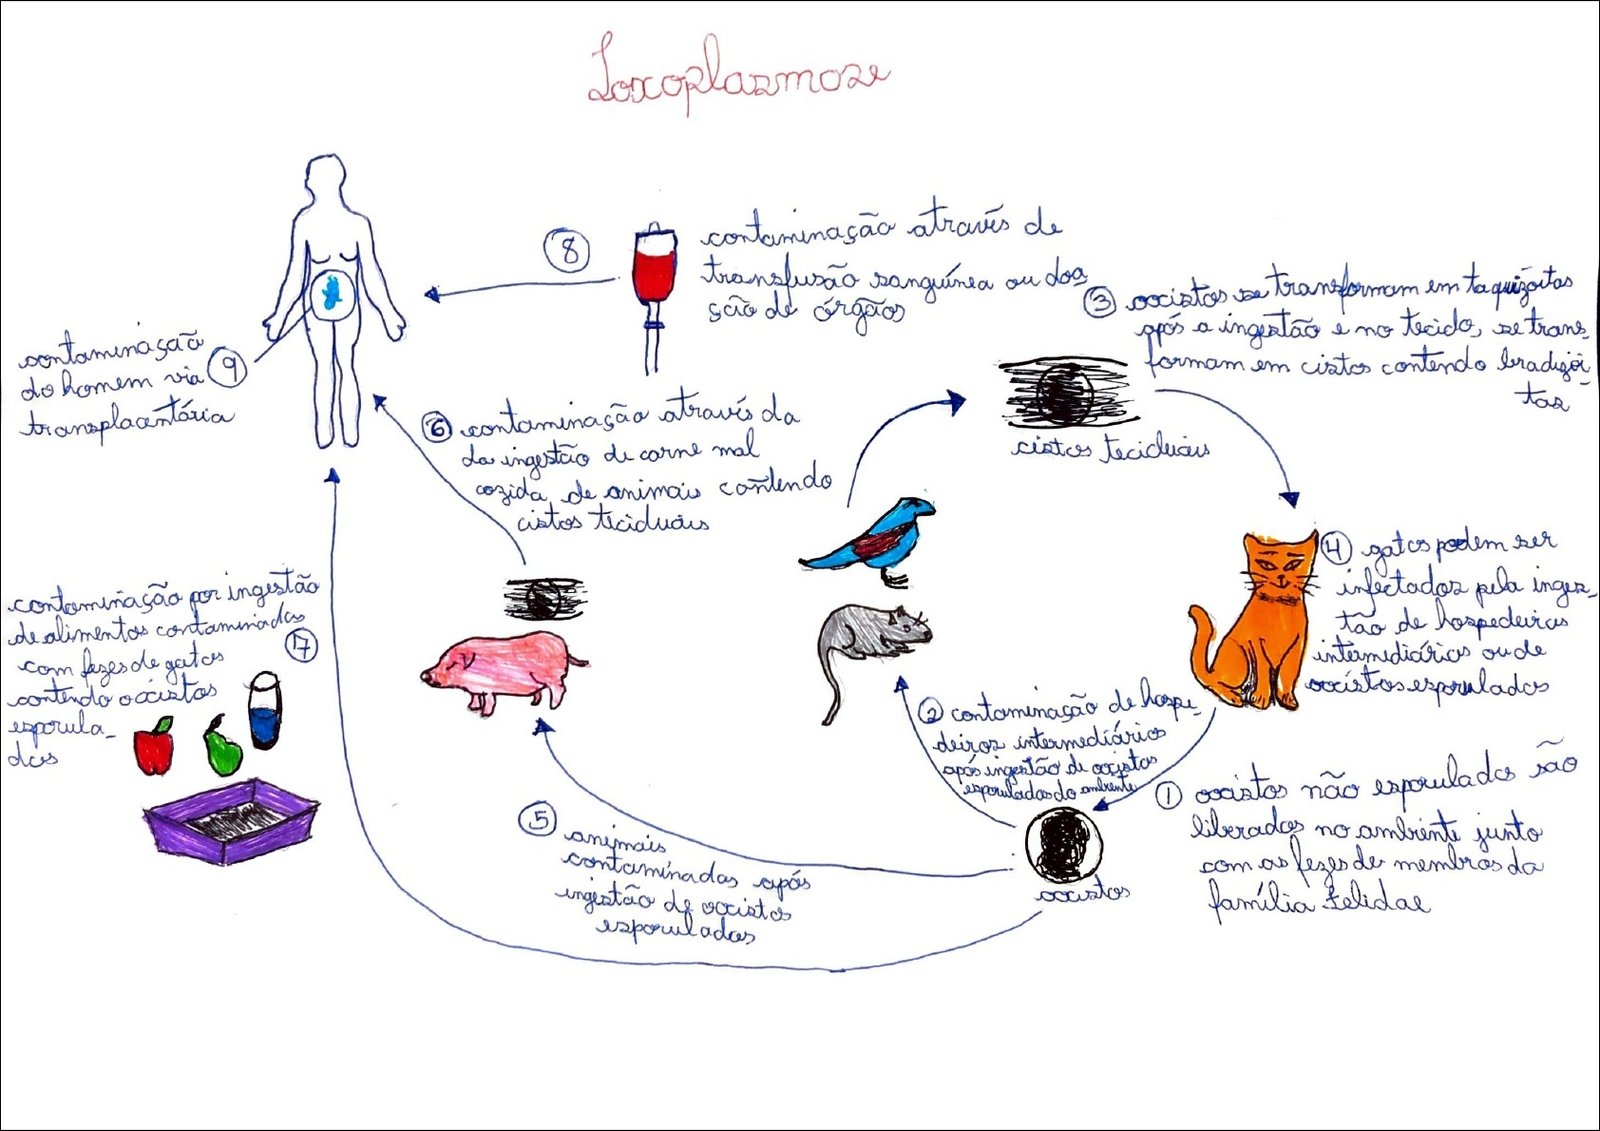 Toxoplasmose
8
contaminação através de
transfusão sanguínea ou doa
ção de órgãos
3 oocistos se transformam em taquizoítas
após a ingestão e no tecido, se trans-
formam em cistos contendo bradizoí-
tas
cistos teciduais
contaminação
do homem via 9
transplacentária
6 contaminação através da
da ingestão de carne mal
cozida de animais contendo
cistos teciduais
4 gatos podem ser
infectados pela inges-
tão de hospedeiros
intermediários ou de
oocistos esporulados
contaminação por ingestão
de alimentos contaminados
com fezes de gatos 7
contendo oocistos
esporula-
dos
2 contaminação de hospe-
deiros intermediários
após ingestão de oocistos
esporulados do ambiente
1 oocistos não esporulados são
liberados no ambiente junto
com as fezes de membros da
família Felidae
5 animais
contaminados após
ingestão de oocistos
esporulados
oocistos